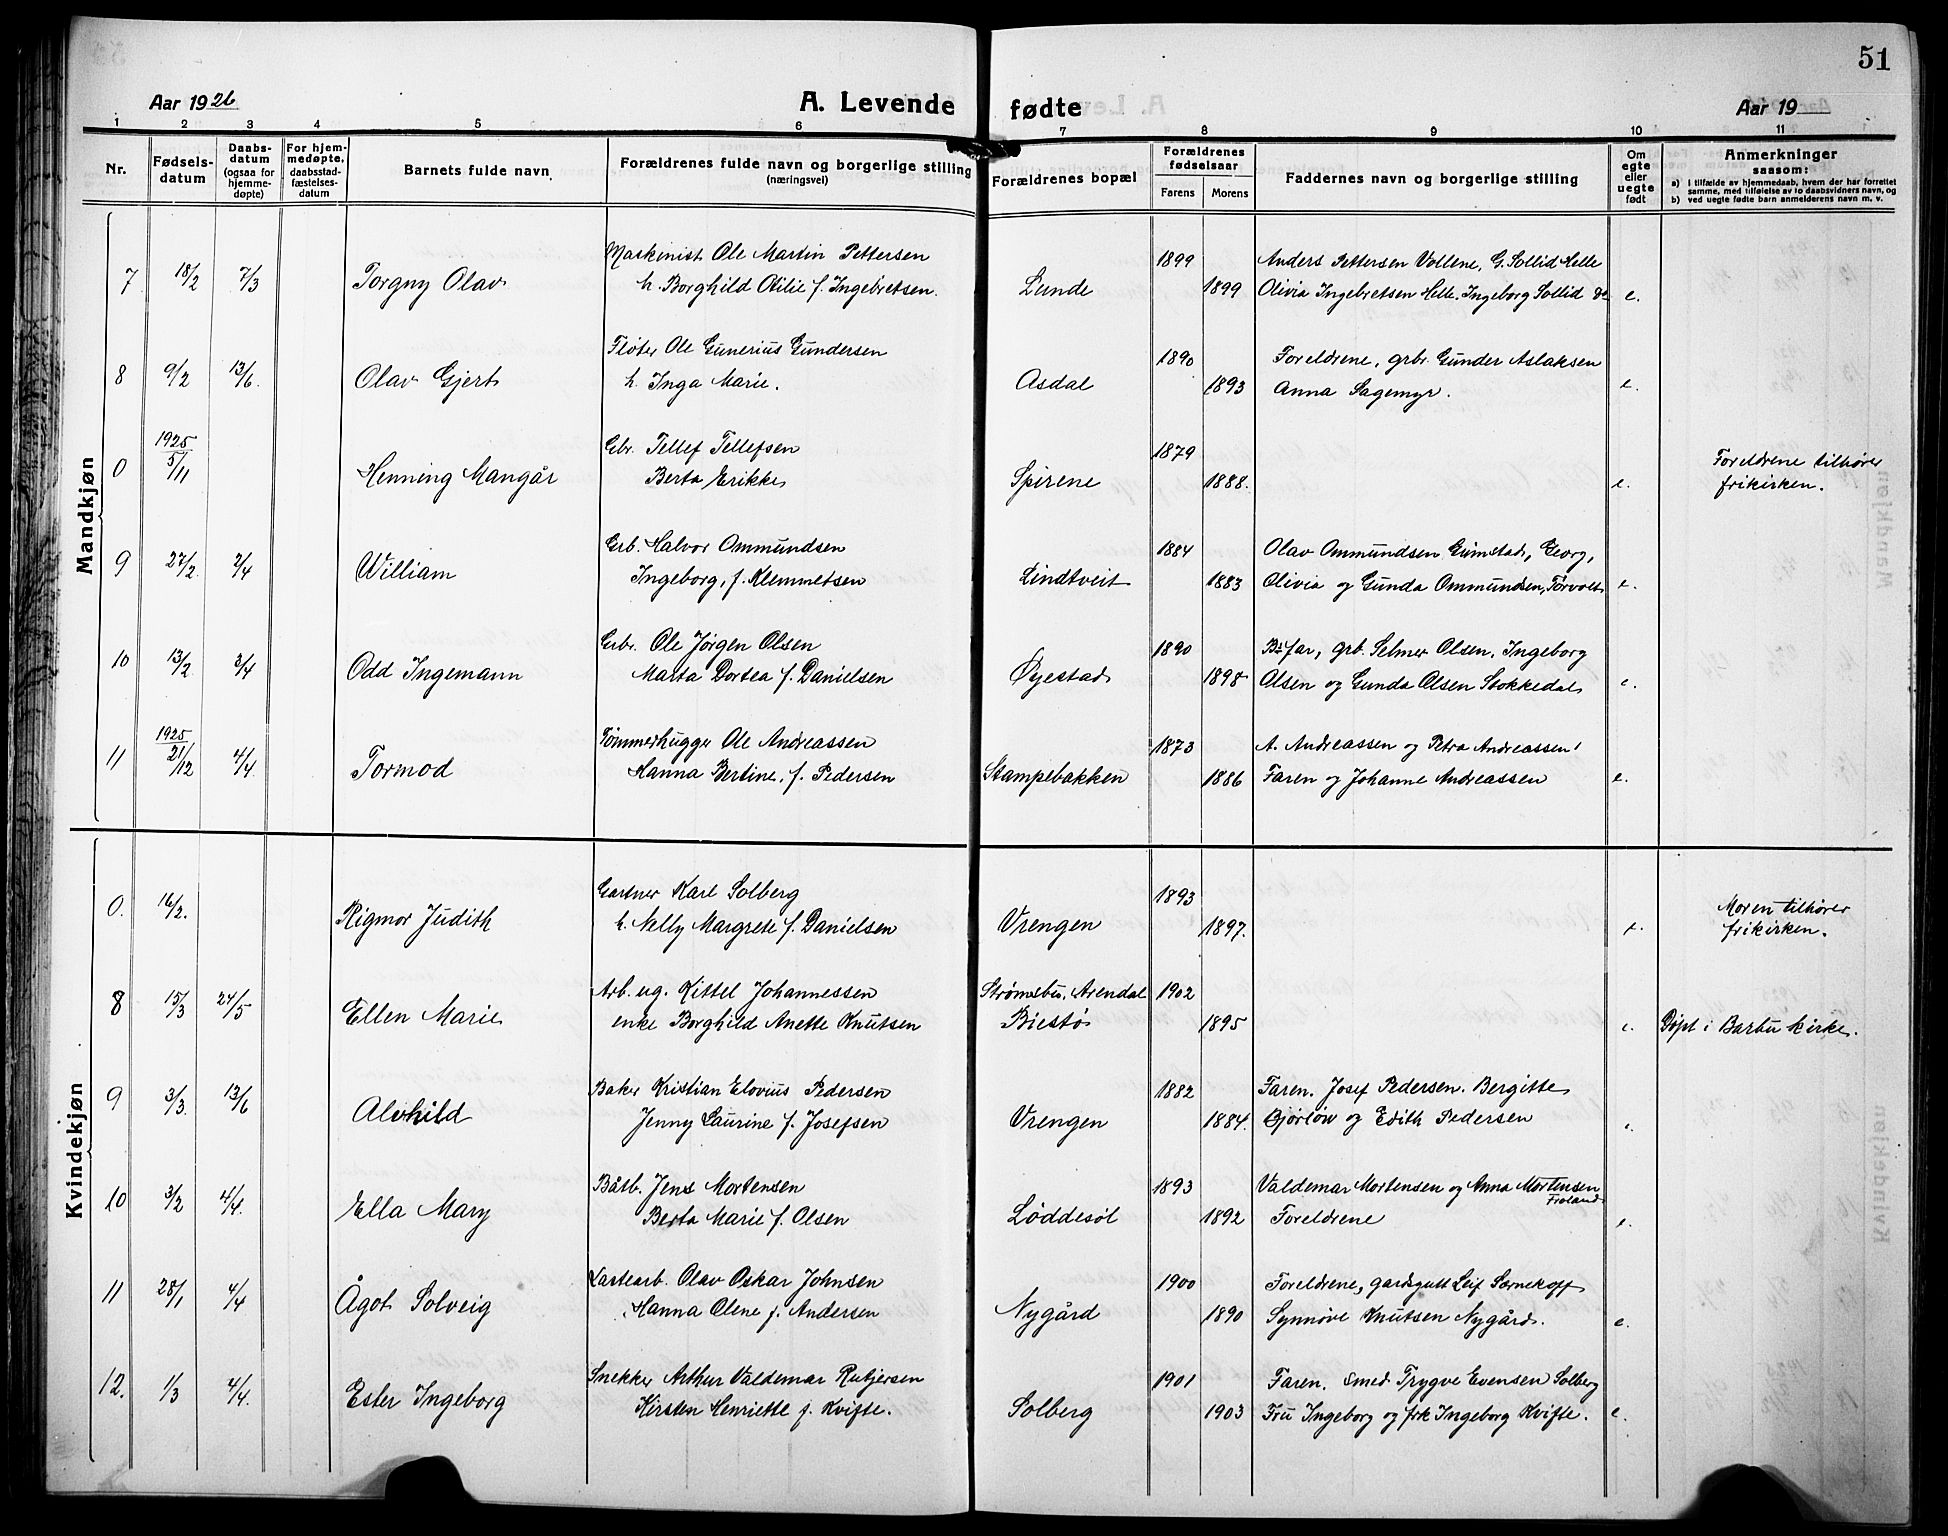 51
Aar 1926
A. Levende fødte
Aar 19
1 2 3 4 5 6 7 8 9 10 11
Nr.
Fødsels-
datum
Daabs-
datum
(ogsaa for
hjemme-
døpte)
For hjem-
medøpte,
daabsstad-
fæstelses-
datum
Barnets fulde navn
Forældrenes fulde navn og borgerlige stilling
(næringsvei)
Forældrenes bopæl
Forældrenes
fødselsaar
Farens Morens
Faddernes navn og borgerlige stilling
Om
egte
eller
uegte
født
Anmerkninger
saasom:
a) i tilfælde av hjemmedaab, hvem der har forrettet
samme, med tilføielse av to daabsvidners navn, og
b) ved uegte fødte barn anmelderens navn m. v.
Mandkjøn
Maskinist Ole Martin Pettersen 1899 Anders Pettersen Vollene, G. Sollid Helle
7 18/2 7/3 Torgny Olav h. Borghild Otilie f. Ingebretsen. Lunde 1899 Olivia Ingebretsen Helle, Ingeborg Sollid do e.
Fløter Ole Gunerius Gundersen 1890 Foreldrene, grbr. Gunder Aslaksen
8 9/2 13/6. Olav Gjert h. Inga Marie. Asdal 1893 Anna Sagemyr. e.
1925 Gbr. Tellef Tellefsen 1879 Foreldrene tilhører
0 5/11 Henning Mangår Berta Erikke Spirene 1888. e. frikirken.
Grb. Halvor Ommundsen 1884 Olav Ommundsen Grimstad, Georg,
9 27/2. 2/4 William Ingeborg, f. Klemmetsen Lindtveit 1883 Olivia og Gunda Ommundsen, Torvolt e.
Grbr. Ole Jørgen Olsen 1890 B: far, grb. Selmer Olsen, Ingeborg
10 13/2 3/4 Odd Ingemann Marta Dortea f. Danielsen Øyestad 1898 Olsen og Gunda Olsen Stokkedal e.
1925 Tømmerhugger Ole Andreassen 1873 A. Andreassen og Petra Andreassen
11 21/12 4/4. Tormod Hanna Bertine, f. Pedersen Stampebakken 1886 Faren og Johanne Andreassen e.
Kvindekjøn
Gartner Karl Solberg 1893 Moren tilhører
0. 16/2. Rigmor Judith h. Nelly Margrete f. Danielsen Vrengen 1897. e. frikirken.
Arb. ug. Kittel Johannessen Strømsbu, Arendal 1902
8 15/3 24/5 Ellen Marie enke Borghild Anette Knutsen Biestø 1895 e. Døpt i Barbu kirke.
Baker Kristian Elovius Pedersen 1882 Faren. Josef Pedersen. Bergitte
9 3/3. 13/6 Alvhild Jenny Laurine f. Josefsen Vrengen 1884. Bjorløw og Edith Pedersen e.
Båtb. Jens Mortensen 1893 Valdemar Mortensen og Anna Mortensen
Froland.
10 3/2 4/4. Ella Mary Berta Marie f. Olsen Løddesøl 1892 Foreldrene e.
Lastearb. Olav Oskar Johnsen 1900 Foreldrene, gardsgutt Leif Sørnekoff
11 28/1 4/4 Ågot Solveig Hanna Olene f. Andersen Nygård 1890 Synnøve Knutsen Nygård. e.
Snekker Arthur Valdemar Reiersen 1901 Faren. Smed Trygve Evensen Solberg
12. 1/3 4/4. Ester Ingeborg Kirsten Henriette f. Kvifte. Solberg 1903 Fru Ingeborg og frk Ingeborg Kvifte. e.